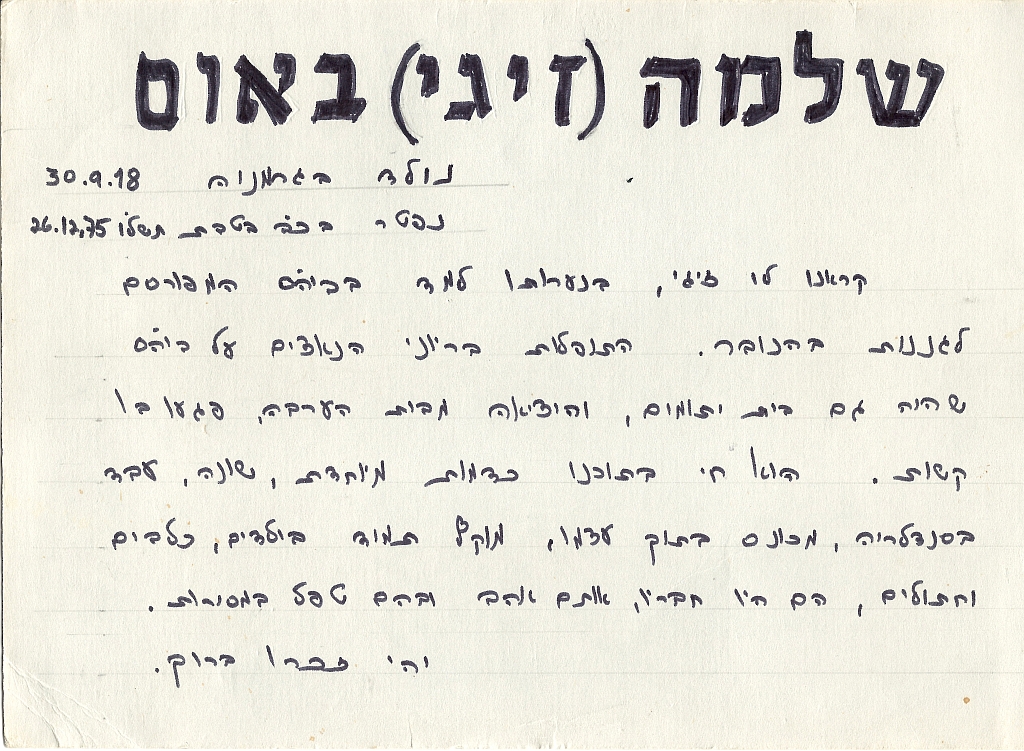 שלמה (זיגי) באום
נולד בגרמניה 30.9.18
נפטר בכ"ב בטבת תשל"ו 26.12.75
קראנו לו זיגי, בנערותו למד בביה"ס המפורסם
לגננות בהנובר. התנפלות בריוני הנאצים על ביה"ס
שהיה גם בית יתומים, והיציאה מבית הערבה, פגעו בו
קשות. הוא חי בתוכנו כדמות מיוחדת, שונה, עבד
בסנדלריה, מכונס בתוך עצמו, מוקף תמיד בילדים, כלבים
וחתולים, הם היו חבריו, אותם אהב ובהם טפל במסירות.
יהי זכרו ברוך.